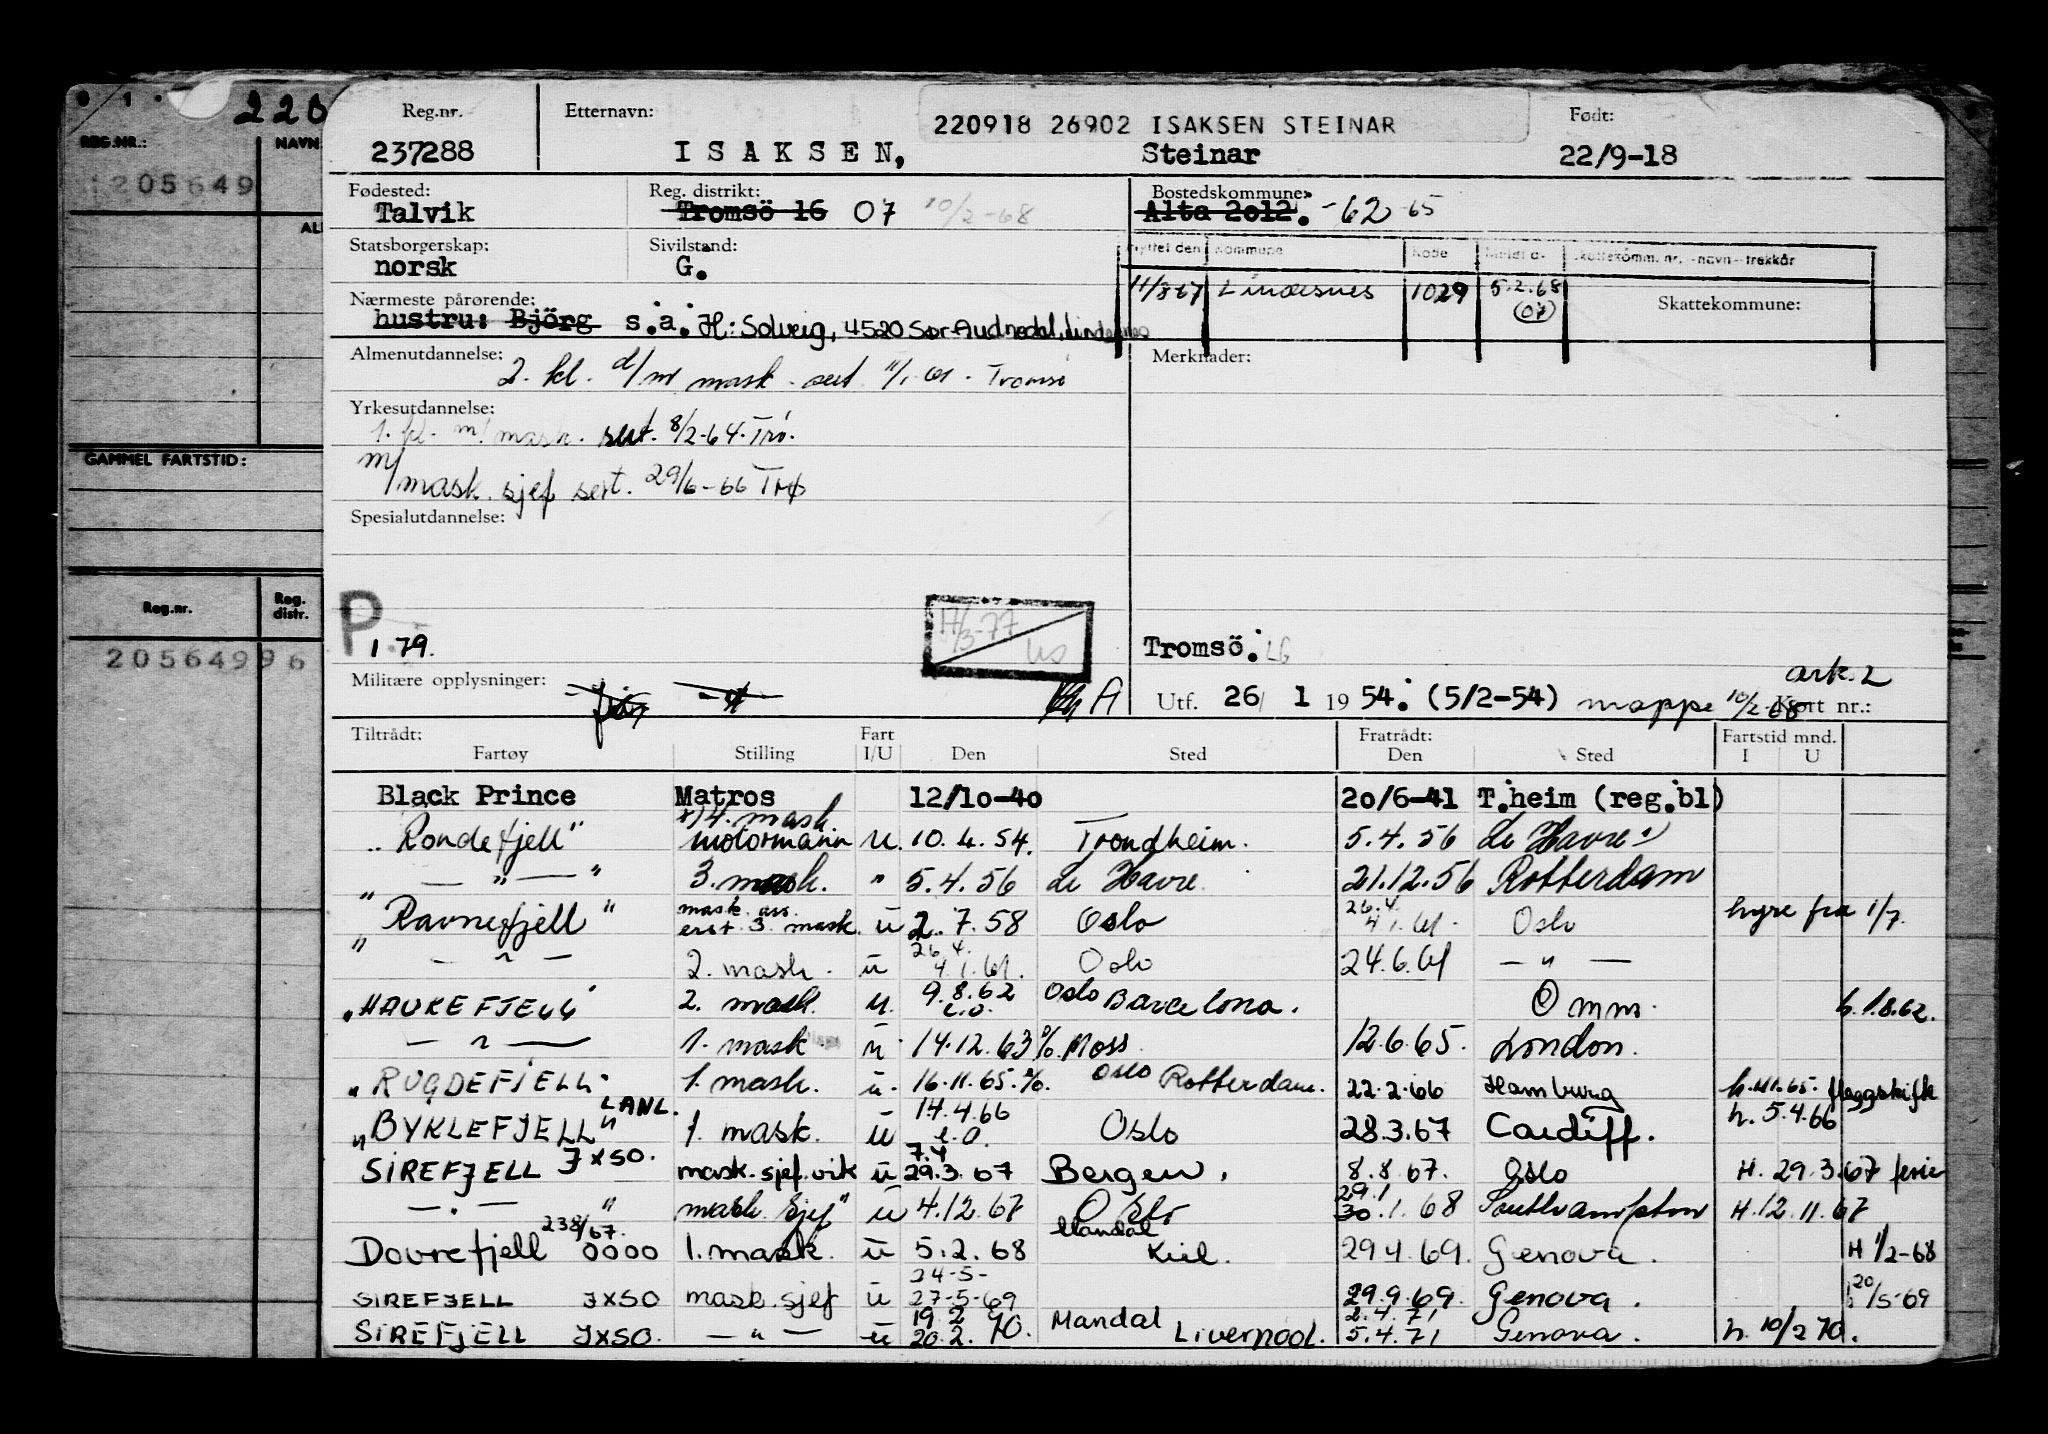 220
REG.NR.:
NAVN
205649
GAMMEL FARTSTID:
Reg.nr.
Reg. distr.
205649 96
Reg.nr. Etternavn: 220918 26902 ISAKSEN STEINAR Født:
237288 ISAKSEN, Steinar 22/9-18
Fødested: Reg. distrikt: Bostedskommune:
Talvik Tromsö 16 07 10/2-68 Alta 2012. -62 -65
Statsborgerskap: Sivilstand:
norsk G.
flyttet den kommune kode meldt d. skattekomm. nr. -navn- trekkår
11/8-67 Lindesnes 1029 5.2.68 (07) Skattekommune:
Nærmeste pårørende:
hustru: Björg s.a. H: Solveig, 4520 Sør-Audnedal, Lindesnes
Almenutdannelse: Merknader:
2. kl. d/m mask. sert 11/1.61. Tromsø
Yrkesutdannelse:
1. kl. m/ mask. sert. 8/2-64. Trø.
m/mask. sjef sert. 29/6-66 Trø
Spesialutdannelse:
P
1 79.
17/3-77
Tromsö. LG
Militære opplysninger: A
ark. 2
Utf. 26/ 1 1954. (5/2-54) mappe 10/2-68 Kort nr.:
Tiltrådt: Fart Fratrådt: Fartstid mnd.
Fartøy Stilling I/U Den Sted Den Sted I U
Black Prince Matros 12/10-40 20/6-41 T.heim (reg.bl)
"Rondefjell" +) 4. mask motormann u. 10.4.54. Trondheim. 5.4.56 Le Havre
— " — 3. mask. " 5.4.56 Le Havre. 21.12.56 Rotterdam
"Ravnefjell" mask. ass. erst 3. mask. u 2.7.58 Oslo 26.4 4.1.61. Oslo hyre fra 1/7.
" — " — 2. mask. u 26.4. 4.1.61. Oslo 24.6.61 — " —
"HAUKEFJELL" 2. mask. u. 9.8.62 e.o. Oslo Barcelona. O mm. h. 1.8.62.
— " — 1. mask. u 14.12.63 % Moss. 12.6.65. London.
"RUGDEFJELL" 1. mask. u. 16.11.65. %. Oslo Rotterdam. 22.2.66 Hamburg h. 11.65. flaggskifte
"BYKLEFJELL" LANL. 1. mask. u 14.4.66 e.o. Oslo 28.3.67 Cardiff. h. 5.4.66
SIREFJELL JXSO. mask. sjef. vik u 7.4 29.3.67 Bergen. 8.8.67. Oslo H. 29.3.67 ferie
— " — " mask. sjef " u 4.12.67 Oslo 29.1 30.1.68 Southampton H. 12.11.67
Dovrefjell 238/67. 0000 1. mask. u 5.2.68 Mandal Kiel. 29.4.69. Genova. H 1/2-68
SIREFJELL JXSO mask. sjef u 24-5- 27-5-69 29.9.69. Genova. h 20/5-69
SIREFJELL JXSO. — " — u 19.2 20.2. 70. Mandal Liverpool. 2.4.71 5.4.71 Genova. h. 10/2 70.